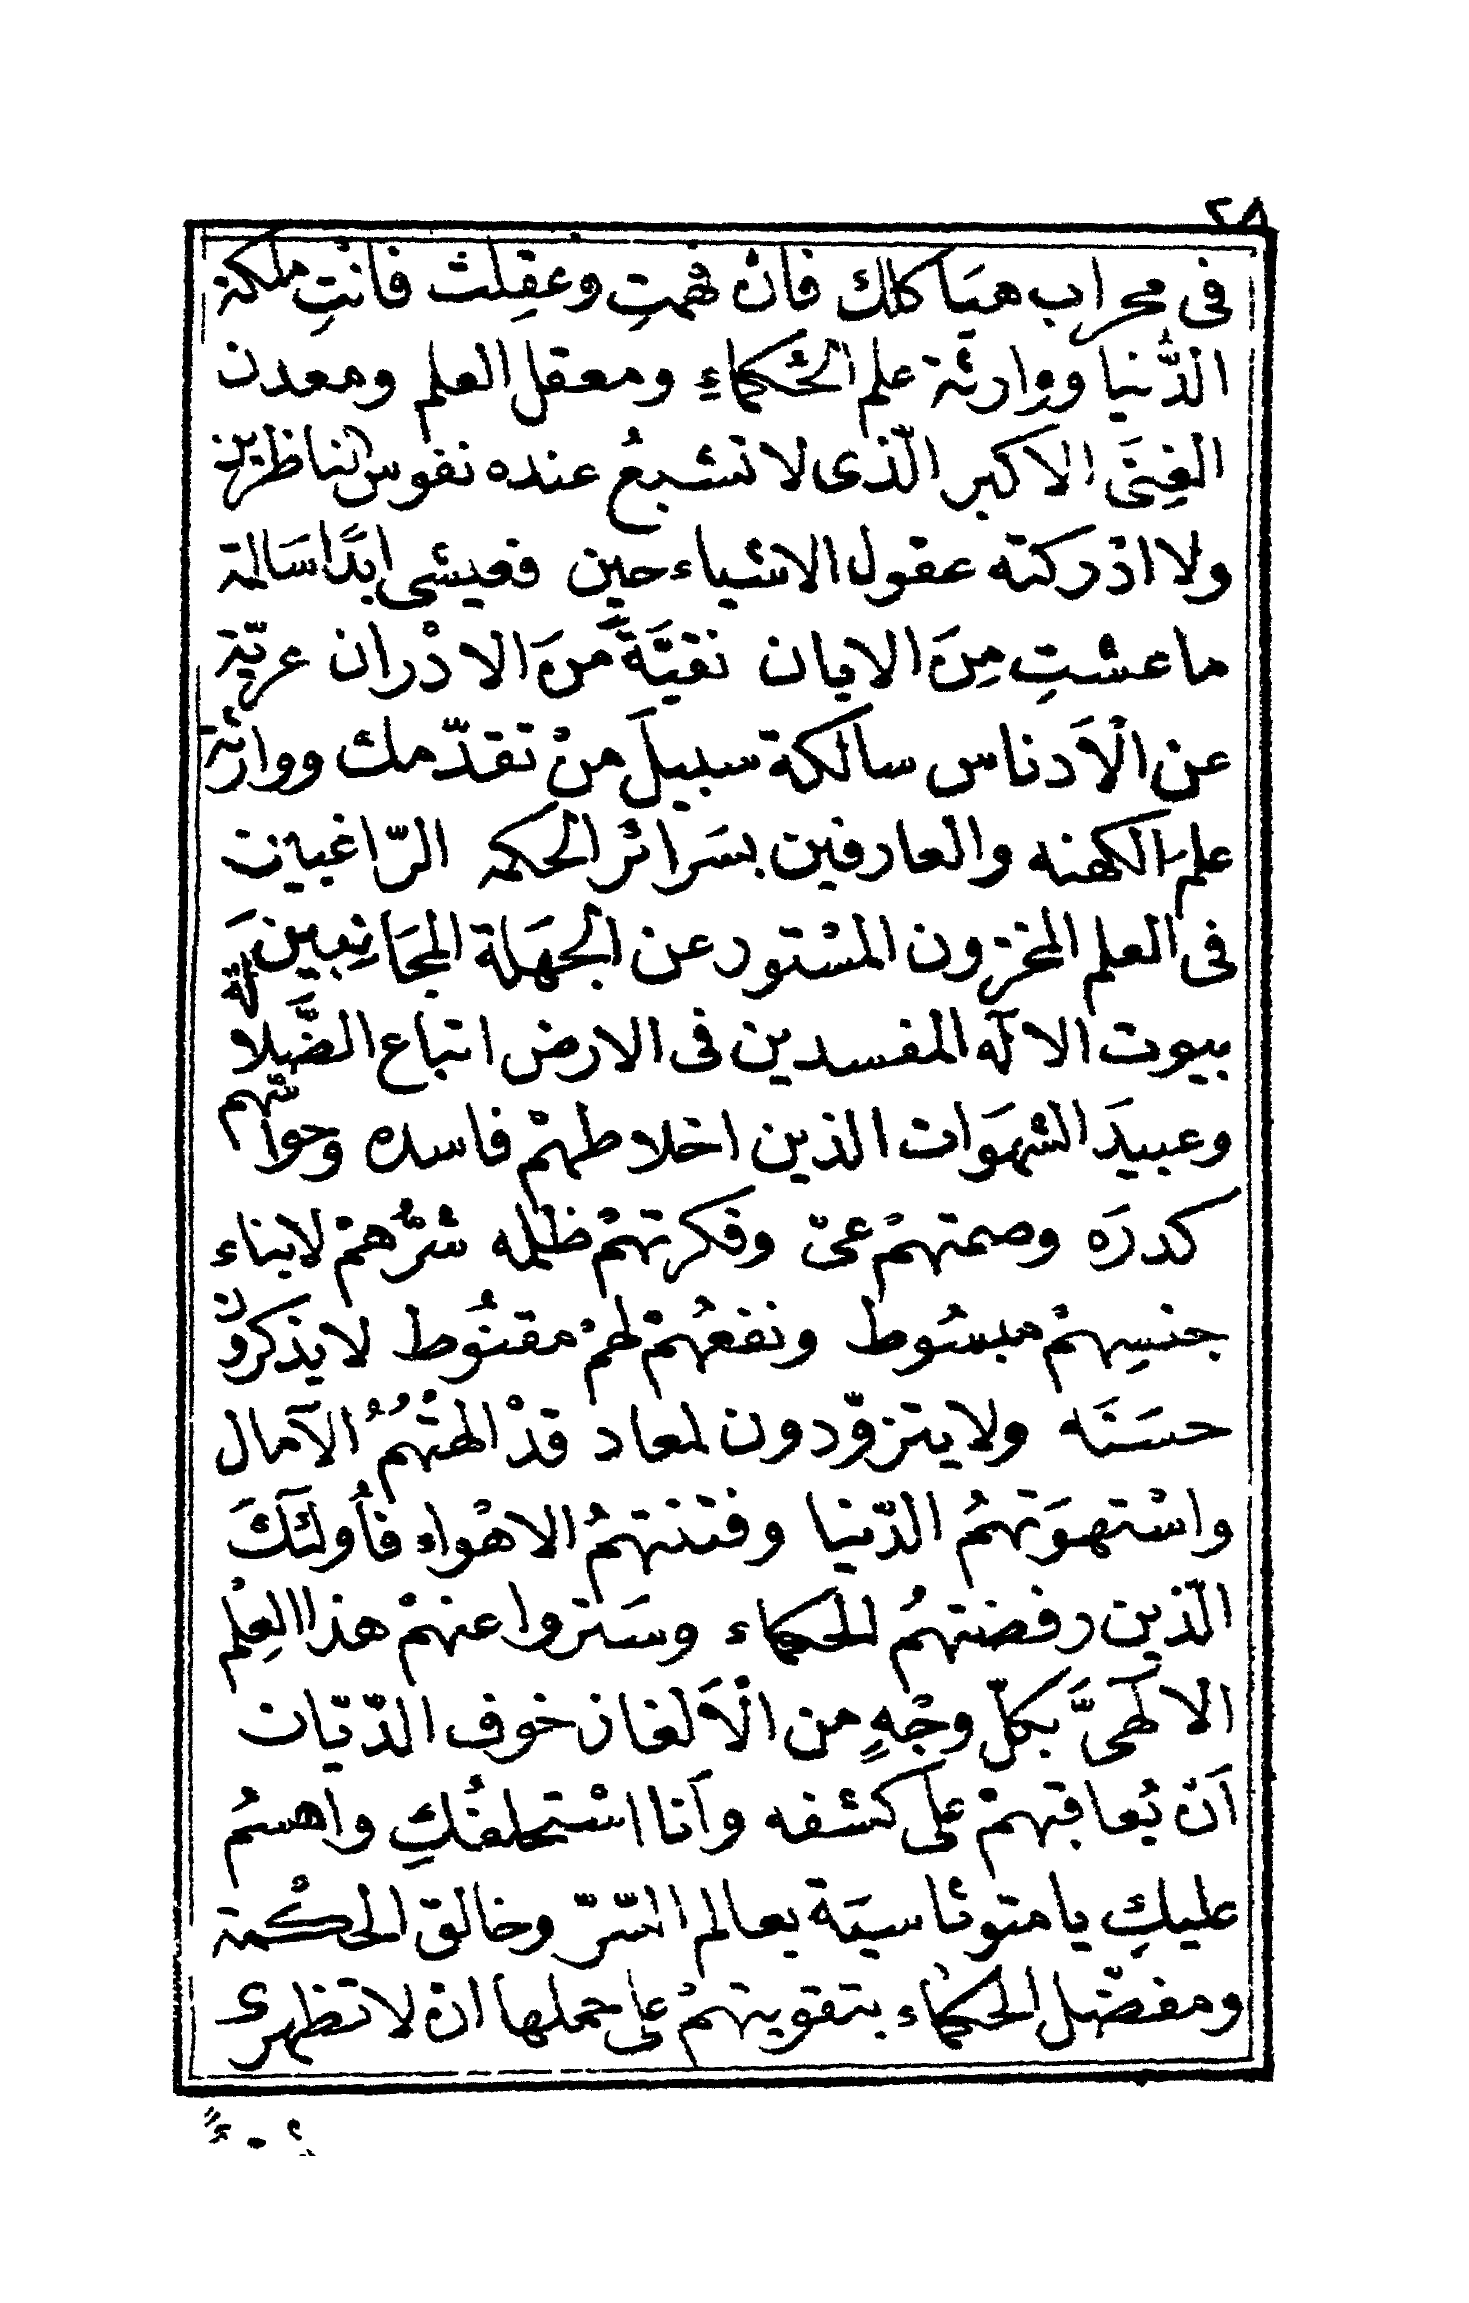 ٢٨
فى محراب هيَاكلك فانْ فهمتِ وعقِلت فانْتِ ملكة
الدُّنيا ووارثة علم الحُكماءِ ومعقل العلم ومعدن
الغِنَى الاكبر الّذى لا تشبعُ عنده نفوس الناظرين
ولا اذركته عقول الاشياء حين فعيشى ابدًا سَالمة
ما عشتِ مِنَ الايان نقيَّةً مِنَ الادْران عريّة
عن الْاَدناس سالكة سبيلَ منْ تقدّمك ووارثة
علم الكهنه والعارفين بسَرائر الحكمه الرّاغبين
فى العلم المخزون المسْتور عن الجهَلة المجَانِبين لَه
بيوت الالٓه المفسدين فى الارض اتباع الضَّلالة
وعبيدَ الشهَوات الذين اخلاطهمْ فاسده وحواسّهم
كدرَه وصمتهمْ عىّ وفكرتهمْ ظلمه شرُّهمْ لابناء
جنسِهمْ مبسُوط ونفعُهمْ لهمْ مقنُوط لا يذكرون
حسَنَه ولا يتزوّدون لمعاد قدْ الهتْهُمُ الآمال
واسْتهوَتهمُ الدّنيا وفتنتهمُ الاهْواء فأولئكَ
الّذين رفضتهمُ الحكماء وسَتروا عنهمْ هذا العِلْم
الالٓهىَّ بكلّ وجْهٍ من الْاَلغاز خوف الدّيّات
اَنْ يُعاقبهمْ على كشفه واَنا اسْتحلفُكِ واهسمُ
عليكِ يا متوثاسيَة بعالم السّرّ وخالق الحكْمة
ومفضّل الحكماء بتقويتهمْ على حملها انْ لا تظهرى